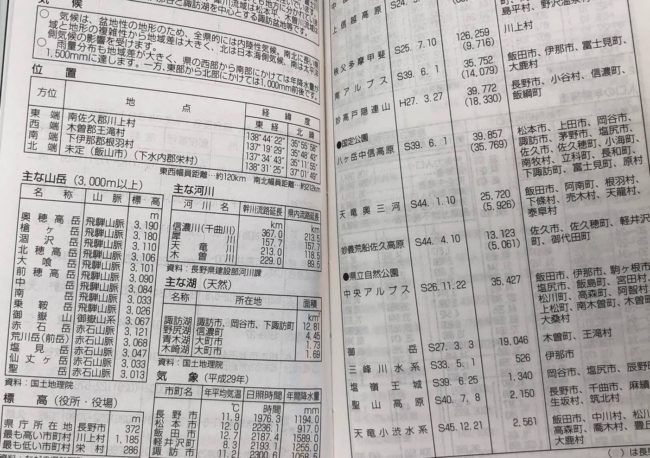 気候
気候は、盆地性の地形のため、全県的には内陸性気候、南北に長い県
域と地形の複雑性から地域差が大きく、北は日本海側気候、南は太平洋
側気候の影響を受けます。
雨量分布も地域差が大きく、県の西部から南部にかけては年降水量が
1,500mmに達します。一方、東部から北部にかけては1,000mm前後です。
位置
方位 地点 経緯度
東経 北緯
東端 南佐久郡川上村 138°44′22″ 35°55′58″
西端 木曽郡王滝村
南端 下伊那郡根羽村
北端 未定(飯山市)(下水内郡栄村)
東西幅員距離…約120km 南北幅員距離…約212km
主な山岳(3,000m以上)
名称 山脈 標高
m
奥穂高岳 飛騨山脈 3,190
槍ヶ岳 飛騨山脈 3,180
涸沢岳 飛騨山脈 3,110
北穂高岳 飛騨山脈 3,106
大喰岳 飛騨山脈 3,101
前穂高岳 飛騨山脈 3,090
中岳 飛騨山脈 3,084
南岳 飛騨山脈 3,033
乗鞍岳 飛騨山脈 3,026
御嶽山 御嶽山系 3,067
赤石岳 赤石山脈 3,121
荒川岳(前岳) 赤石山脈 3,068
塩見岳 赤石山脈 3,047
仙丈ヶ岳 赤石山脈 3,033
聖岳 赤石山脈 3,013
資料:国土地理院
標高(役所・役場)
m
県庁所在地 長野市 372
最も高い市町村 川上村 1,185
最も低い市町村 栄村 286
主な河川
河川名 幹川流路延長 県内流路延長
km km
信濃川(千曲川) 367.0 213.5
犀川 157.7 157.7
天竜川 213.0
木曽川 229.0 89.5
資料:長野県建設部河川課
主な湖(天然)
名称 所在地 面積
諏訪湖 諏訪市、岡谷市、下諏訪町 12.81
野尻湖 信濃町 4.45
青木湖 大町市 1.73
木崎湖 大町市 1.69
資料:国土地理院
気象(平成29年)
市町名 年平均気温 日照時間 年間降水量
℃ 時間 mm
長野市 11.9 1976.3 1194.0
松本市 12.0 2236.1 917.0
飯田市 12.7 2187.4 1589.0
軽井沢町 8.3 2193.1 1255.0
諏訪市 11.2 2300.6
上信越高原 S24.
島平村、野沢温泉村
秩父多摩甲斐 S25. 7.10 126,259 川上村
(9,716)
南アルプス S39. 6. 1 35,752 飯田市、伊那市、富士見町、
(14,079) 大鹿村
妙高戸隠連山 H27. 3.27 39,772 長野市、小谷村、信濃町、
(18,330) 飯綱町
●国定公園
八ヶ岳中信高原 S39. 6. 1 39,857 松本市、上田市、岡谷市、
(35,769) 諏訪市、茅野市、塩尻市、
佐久市、佐久穂町、小海町、
南牧村、立科町、長和町、
下諏訪町、富士見町、原村
天竜奥三河 S44. 1.10 25,720 飯田市、阿南町、根羽村、
(5,926) 下條村、売木村、天龍村、
泰阜村
妙義荒船佐久高原 S44. 4.10 13,123 佐久市、佐久穂町、軽井沢
(5,061) 町、御代田町
●県立自然公園
中央アルプス S26.11.22 35,427 飯田市、伊那市、駒ヶ根市
御岳 S27. 3. 3 19,046 木曽町、王滝村
三峰川水系 S33. 5. 1 526 伊那市
塩嶺王城 S39. 6.25 1,340
聖山高原 S40. 7. 8 2,150 長野市、千曲市、麻績
生坂村、筑北村
天竜小渋水系 S45.12.21 2,561 飯田市、中川村、松川
大鹿村、喬木村、豊丘